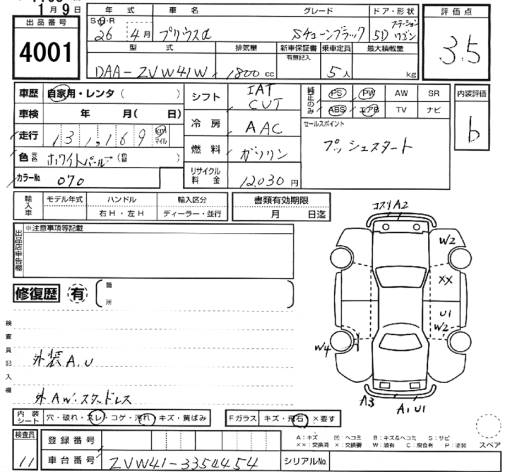 1月9日
出品番号
4001
年式 車名 グレード ドア・形状 評価点
S・H・R
26年 4月 プリウスα Sチューンブラック 5D ステーションワゴン 3.5
型式 排気量 新車保証書 乗車定員 最大積載量
有無記入
DAA-ZVW41W 1800cc 5人 kg
車歴 自家用・レンタ( )
車検 年 月( 日)
走行 131,169 km マイル
色 ホワイトパール
カラーNo 070
シフト IAT CVT
冷房 AAC
燃料 ガソリン
リサイクル料金 12,030円
純正のみ PS PW AW SR
ABS エアB TV ナビ
セールスポイント
プッシュスタート
内装評価
b
輸入車 モデル年式 ハンドル 輸入区分
右H・左H ディーラー・並行
書類有効期限
月 日迄
出品店申告欄 ※注意事項等記載
修復歴 有 箇所
検査員記入欄
外装A.U
外.AW.スタッドレス
コスリA2
W2
XX
U1
W2
W4
A3
A1 U1
内装シート 穴・破れ・スレ・コゲ・汚れ・キズ・黄ばみ
Fガラス キズ・飛石・×要す
A:キズ U:ヘコミ B:キズ&ヘコミ S:サビ
××:交換済 ×:交換 W:補修 C:腐食 P:塗装
スペア
検査員
11
登録番号
車台番号 ZVW41-3354454 シリアルNo